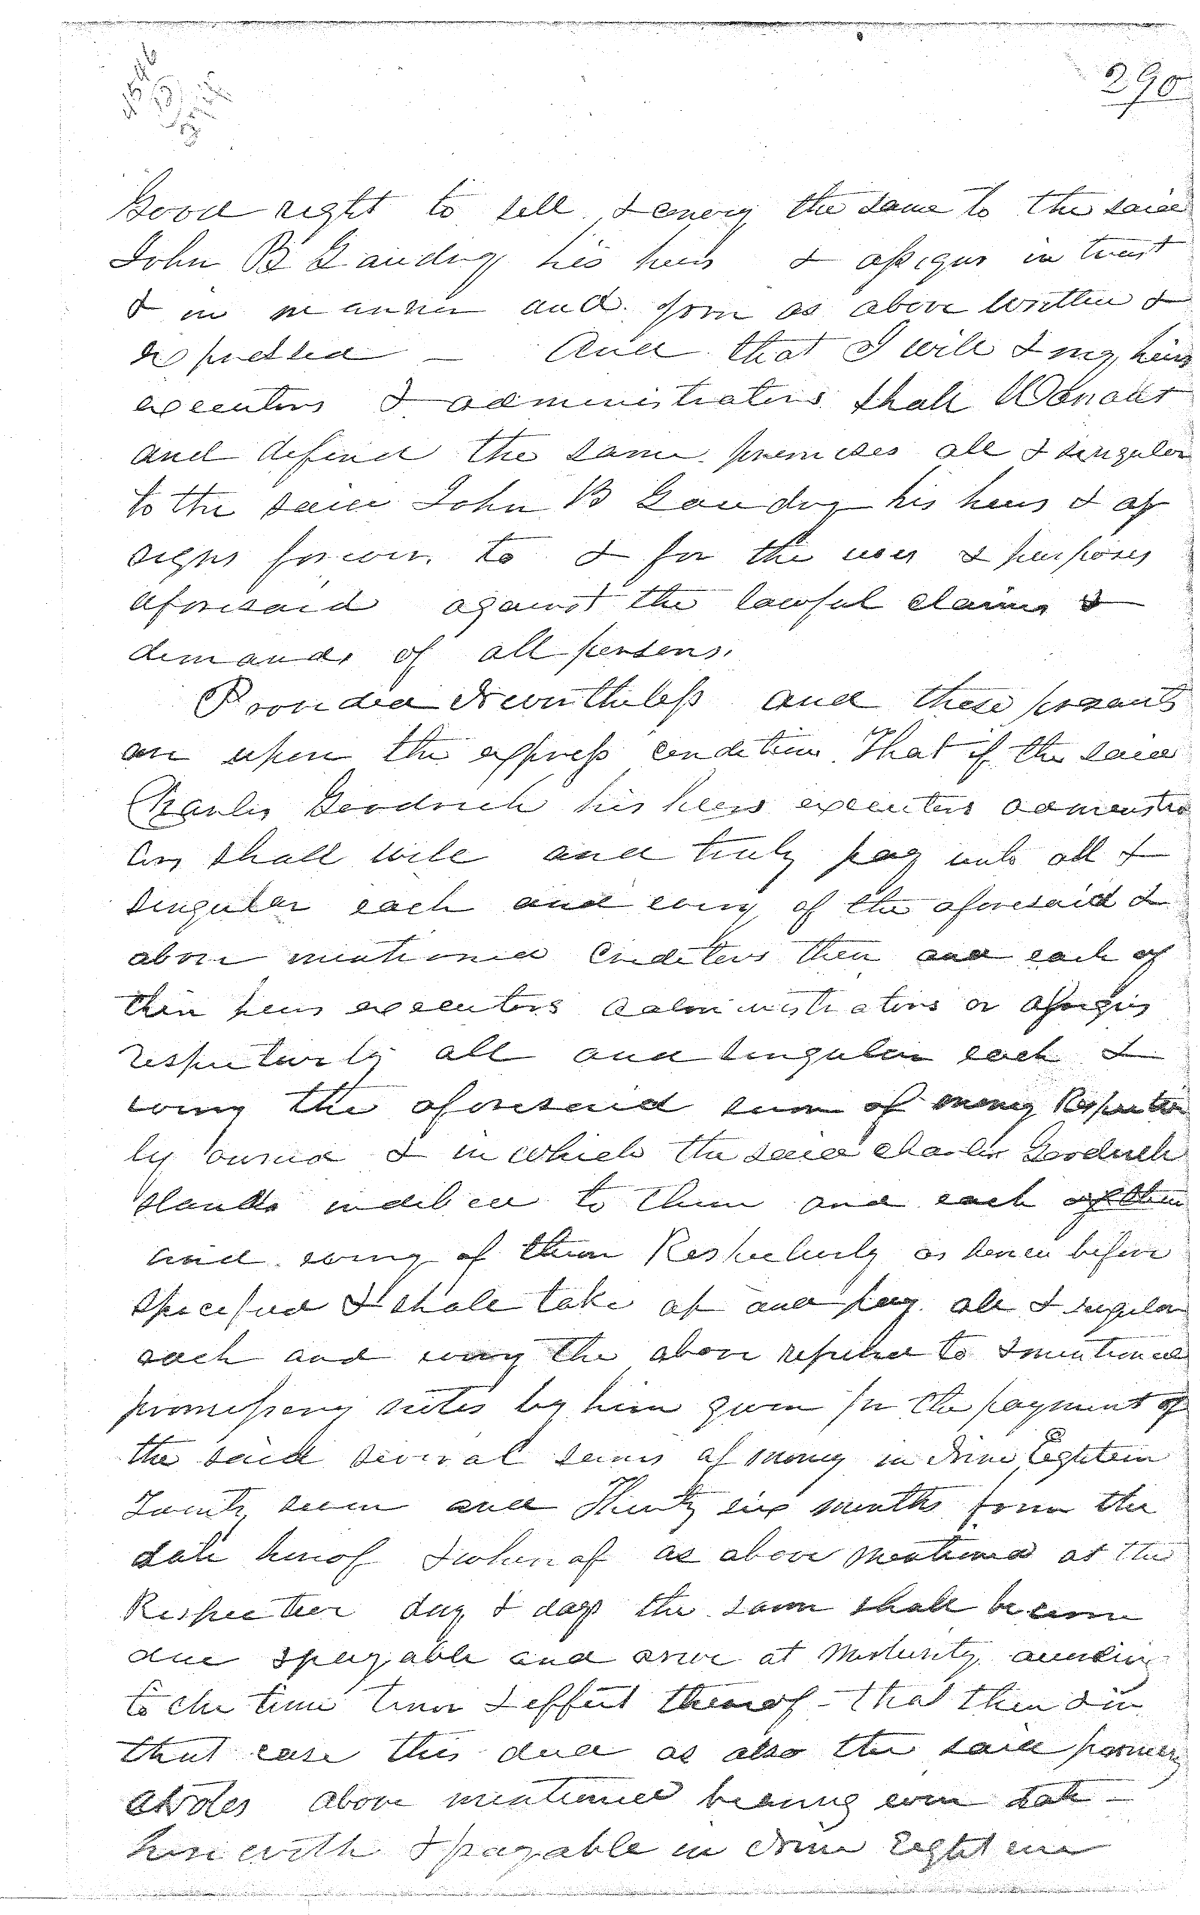 290
Good right to sell & convey the same to the said
John B Gaudry his heirs & assigns in trust
& in manner and form as above written &
expressed — And that I will & my heirs
executors & administrators shall Warrant
and defend the same premises all & singular
to the said John B Gaudry his heirs & as
signs forever to & for the uses & purposes
aforesaid against the lawful claims &
demands of all persons.
Provided Nevertheless and these presents
are upon the express condition That if the said
Charles Goodrich his heirs executors administra
tors shall well and truly pay unto all &
singular each and every of the aforesaid &
above mentioned Creditors their and each of
their heirs executors administrators or assigns
respectively all and singular each &
every the aforesaid sum of money Respective
ly owned & in which the said Charles Goodrich
stands indebted to them and each of them
and every of them Respectively as herein before
specified & shall take up and pay all & singular
each and every the above referred to & mentioned
promissory notes by him given for the payment of
the said several sums of money in Nine Eighteen
Twenty seven and Thirty six months from the
date hereof & whereof as above mentioned at the
Respective day & days the same shall become
due & payable and arive at Maturity according
to the time tenor & effect thereof - that then & in
that case this deed as also the said promisery
Notes above mentioned bearing even date —
herewith & payable in Nine Eighteen